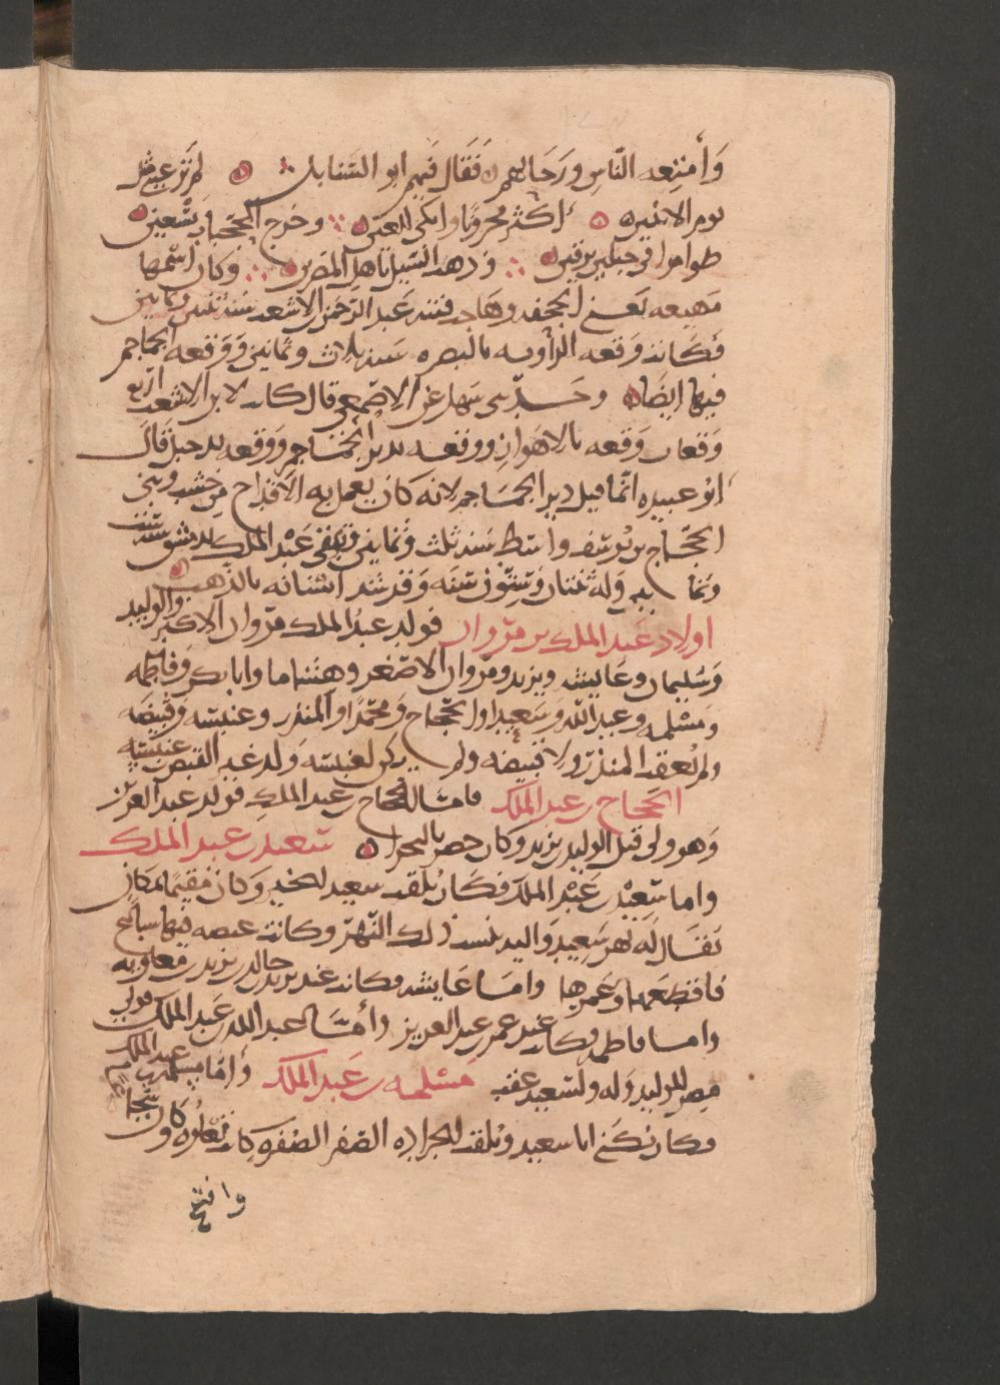 وأمتعه الناس ورحالهم فقال فيهم ابو السنابل لم تر عيني مثل
يوم الاثنين اكثر محزونا وابكى للعين وخرج الحجاب يسعين
طواهرا في جبلين يرقين ذهب السيل باهل المصرين وكان اسمها
مهيعه يعني الجحفه وهاجت فتنه عبد الرحمن بن الاشعث سنه ثنتين وثمانين
فكانت وقعه الزاويه بالبصره سنه ثلاث وثمانين ووقعه الجماجم
فيها ايضا وحدثني سهل عن الاصمعي قال كان لابن الاشعث اربع
وقعات وقعه بالاهواز ووقعه بدير الجماجم ووقعه بدجيل قال
ابو عبيده انما قيل دير الجماجم لانه كان يعمل به الاقداح من خشب وبنى
الحجاج بن يوسف واسط سنه ثلث وثمانين وتوفى عبد الملك بدمشق سنه ست
وثمانين وله ثنتان وستون سنه وقد شد اسنانه بالذهب
اولاد عبد الملك بن مروان فولد عبد الملك مروان الاكبر والوليد
وسليمان وعايشه ويزيد ومروان الاصغر وهشاما وابا بكر وفاطمه
ومسلمه وعبد الله وسعيدا والحجاج ومحمدا والمنذر وعنبسه وقبيصه
ولم يعقب المنذر ولا قبيصه ولم يكن لعنبسه ولد غير الفيض بن عنبسه
الحجاج بن عبد الملك فاما الحجاج بن عبد الملك فولد عبد العزيز
وهو ولي قتل الوليد بن يزيد وكان حصره بالبخرا سعيد بن عبد الملك
واما سعيد بن عبد الملك فكان يلقب سعيد الخير وكان مقيما بمكان
يقال له نهر سعيد واليه ينسب ذلك النهر وكانت غيضه فيها سباع
فاقطعها وعمرها واما عايشه فكانت عند يزيد خالد بن يزيد بن معاويه
واما فاطمه فكانت عند عمر بن عبد العزيز وأما عبد الله بن عبد الملك فولي
مصر للوليد وله ولسعيد عقب مسلمه بن عبد الملك وأما مسلمه بن عبد الملك
فكان يكنى ابا سعيد ويلقب الجراده الصفرا لصفره كانت تعلوه وكان شجاعا
وافتتح